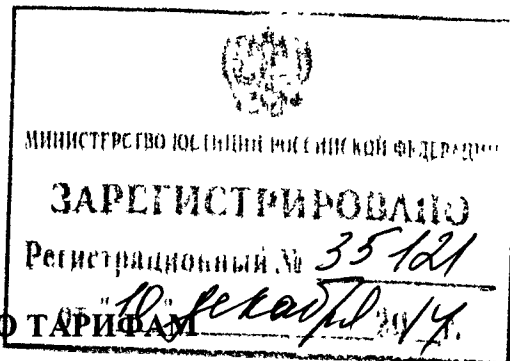 МИНИСТЕРСТВО ЮСТИЦИИ РОССИЙСКОЙ ФЕДЕРАЦИИ
ЗАРЕГИСТРИРОВАНО
Регистрационный № 35121
от "10" декабря 2014.
О ТАРИФАМ